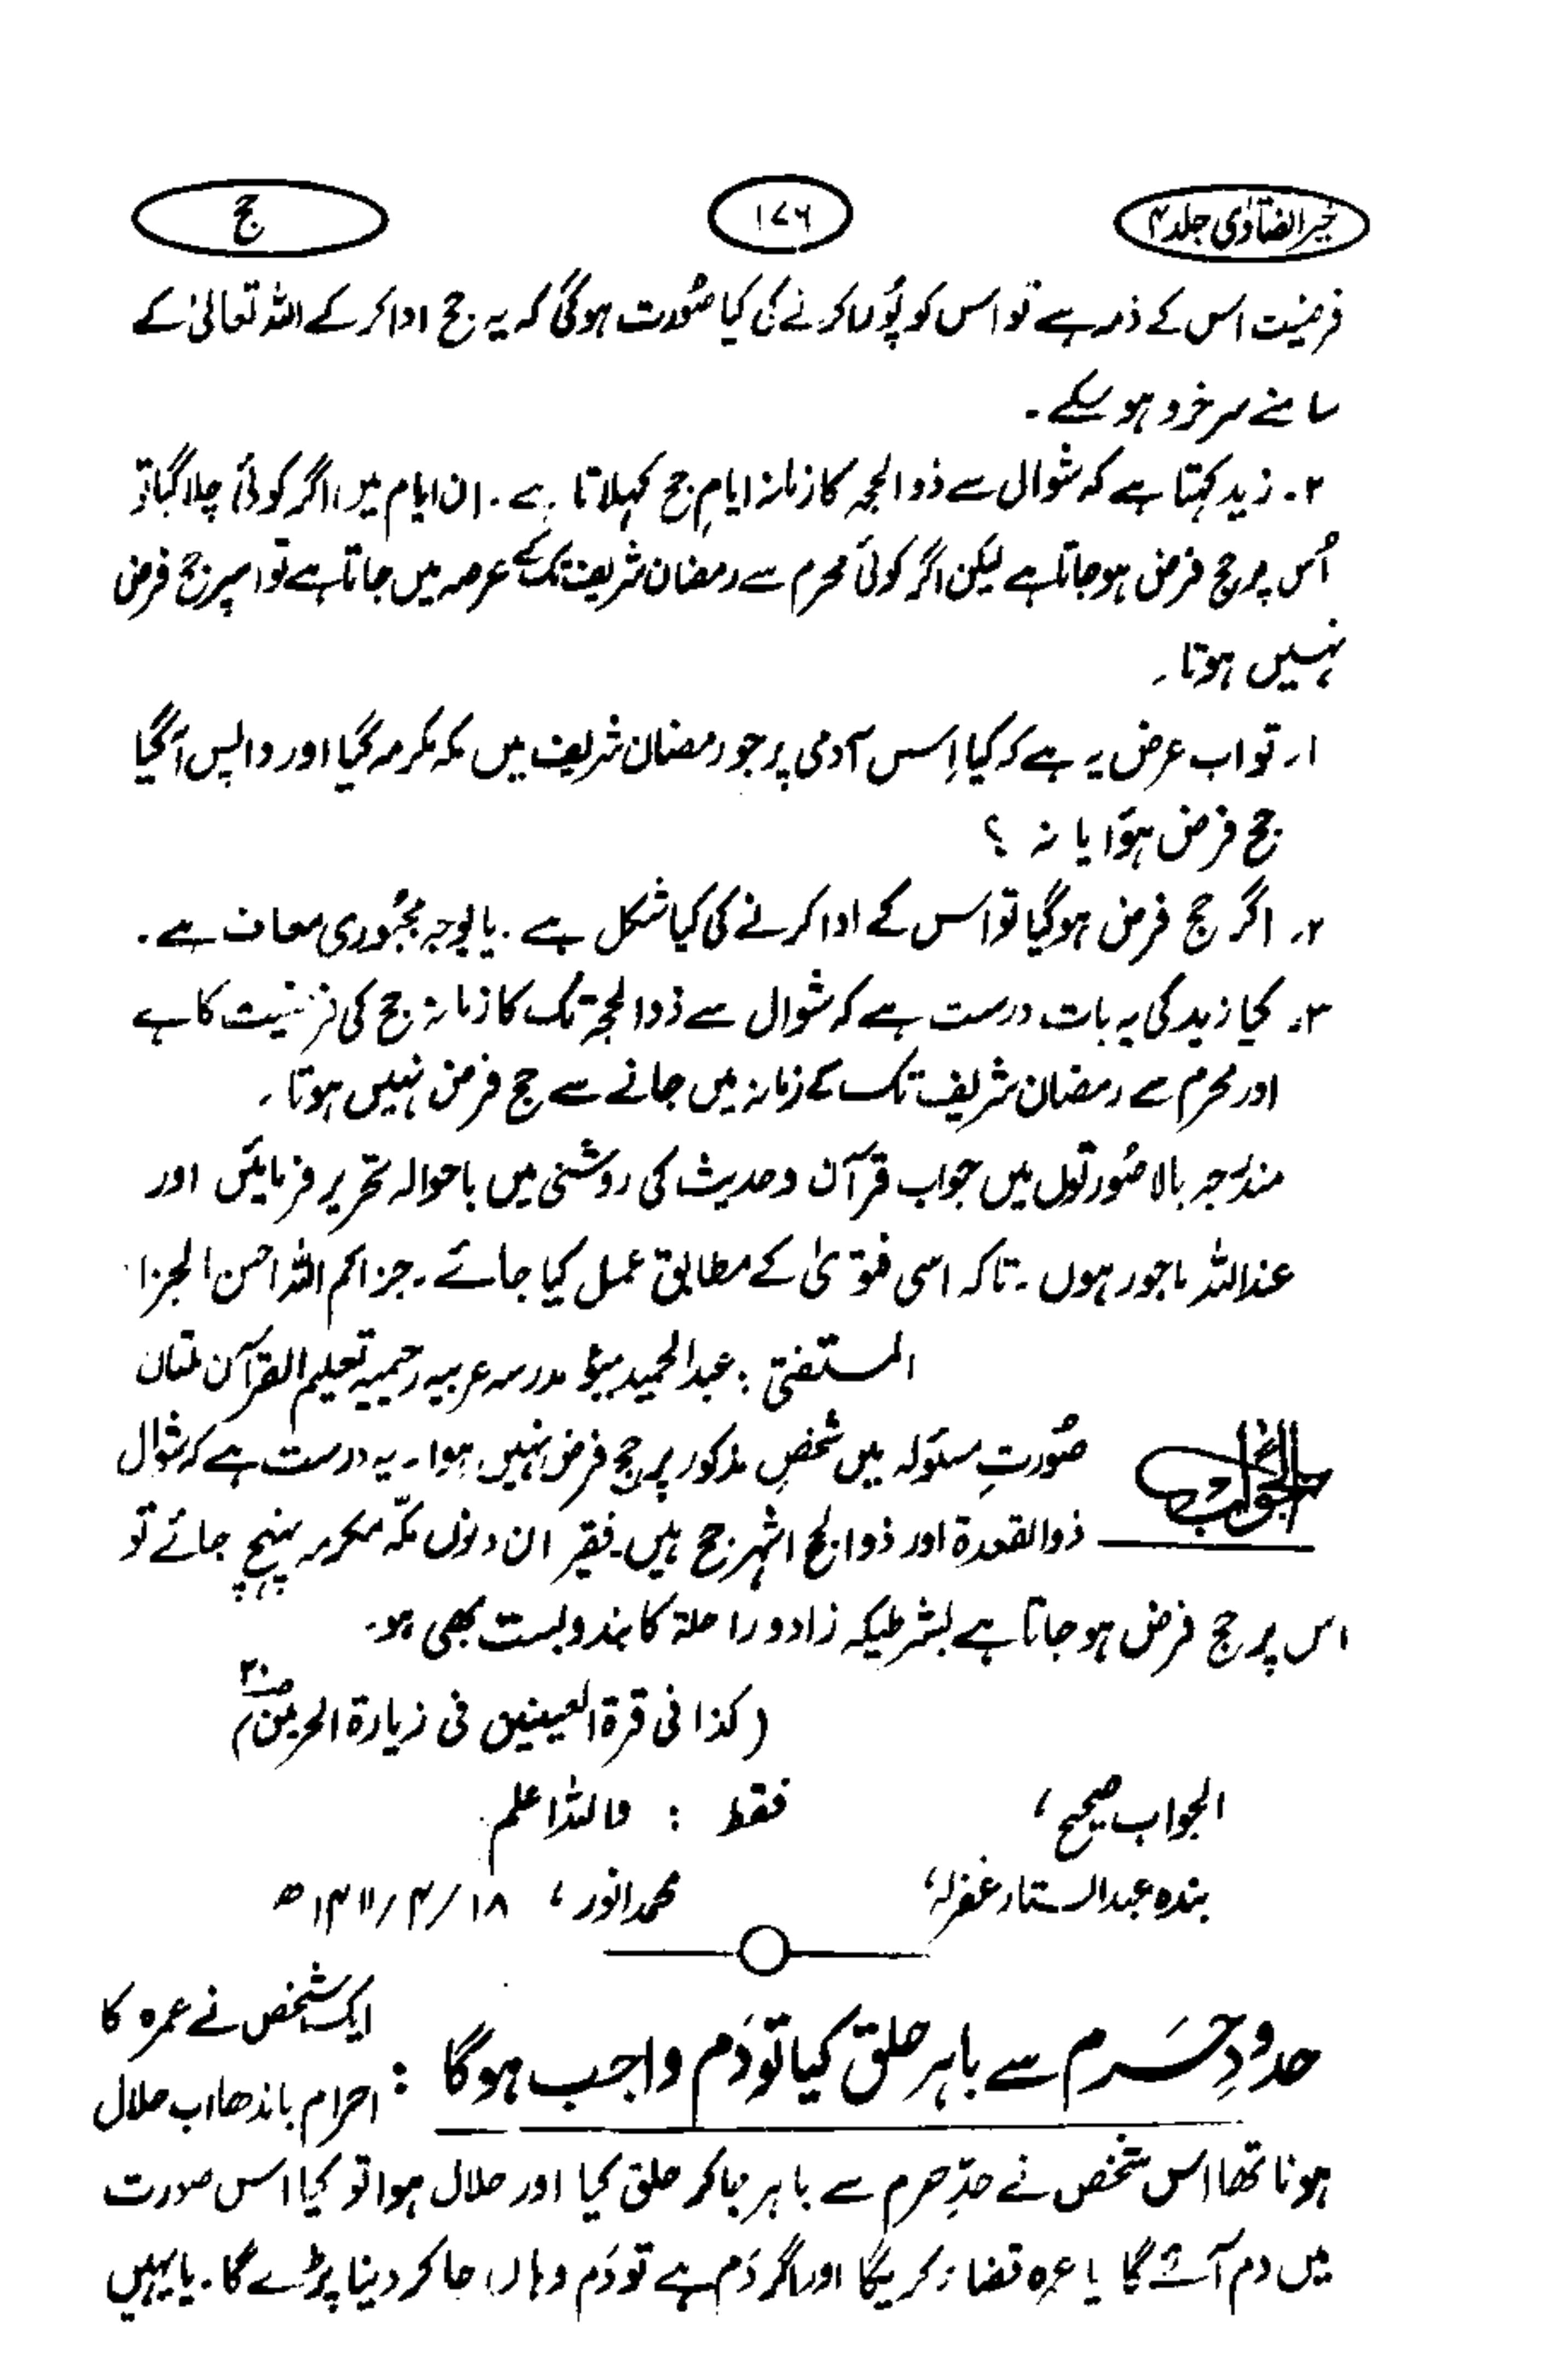 خیر الفتاوٰی جلد ۴
۱۷۶
حج
فرضیت اس کے ذمہ ہے تو اس کو پُورا کرنے کی کیا صُورت ہوگی کہ یہ حج ادا کر کے اللہ تعالیٰ کے
سامنے سرخرو ہو سکے ۔
۲۔ زید کہتا ہے کہ شوال سے ذوالحجہ کا زمانہ ایامِ حج کہلاتا ہے ۔ ان ایام میں اگر کوئی چلا گیا تو
اُس پر حج فرض ہو جاتا ہے لیکن اگر کوئی محرم سے رمضان شریف تک کے عرصہ میں جاتا ہے تو اسپر حج فرض
نہیں ہوتا ۔
۱۔ تو اب عرض یہ ہے کہ کیا اِس آدمی پر جو رمضان شریف میں مکہ مکرمہ گیا اور واپس آگیا
حج فرض ہوَا یا نہ ؟
۲۔ اگر حج فرض ہوگیا تو اس کے ادا کرنے کی کیا شکل ہے ۔ یا بوجہ مجبُوری معاف ہے ۔
۳۔ کیا زید کی یہ بات درست ہے کہ شوال سے ذوالحجۃ تک کا زمانہ حج کی فرضیت کا ہے
اور محرم سے رمضان شریف تک کے زمانہ میں جانے سے حج فرض نہیں ہوتا ۔
مندرجہ بالا صُورتوں میں جواب قرآن وحدیث کی روشنی میں باحوالہ تحریر فرمائیں اور
عنداللہ ماجور ہوں ۔ تاکہ اسی فتویٰ کے مطابق عمل کیا جائے ۔ جزاکم اللہ احسن الجزا
المستفتی : عبدالحمید مدرسہ عربیہ رحیمیہ تعلیم القرآن ملتان
الجواب
صُورتِ مسئولہ میں شخصِ مذکور پر حج فرض نہیں ہوا ۔ یہ درست ہے کہ شوال
ذوالقعدۃ اور ذوالحج اشہرِ حج ہیں ۔ فقیر ان دنوں مکّہ مکرمہ پہنچ جائے تو
اس پر حج فرض ہو جاتا ہے بشرطیکہ زاد وراحلۃ کا بندوبست بھی ہو ۔
(کذا فی قرۃ العینین فی زیارۃ الحرمین ص۳۰)
الجواب صحیح ، فقط : واللہ اعلم
بندہ عبدالستار عفرلہ ، محمد انور ، ۱۸/۴/۱۴۱۱ھ
حدودِ حَرم سے باہر حلق کیا تو دَم واجب ہوگا :
ایک شخص نے عمرہ کا
احرام باندھا اب حلال
ہونا تھا اس شخص نے حدِّ حرم سے باہر جاکر حلق کیا اور حلال ہوا تو کیا اس صورت
میں دم آئے گا یا عمرہ قضاء کریگا اور اگر دَم ہے تو دَم وہاں جاکر دینا پڑے گا ۔ یا یہیں